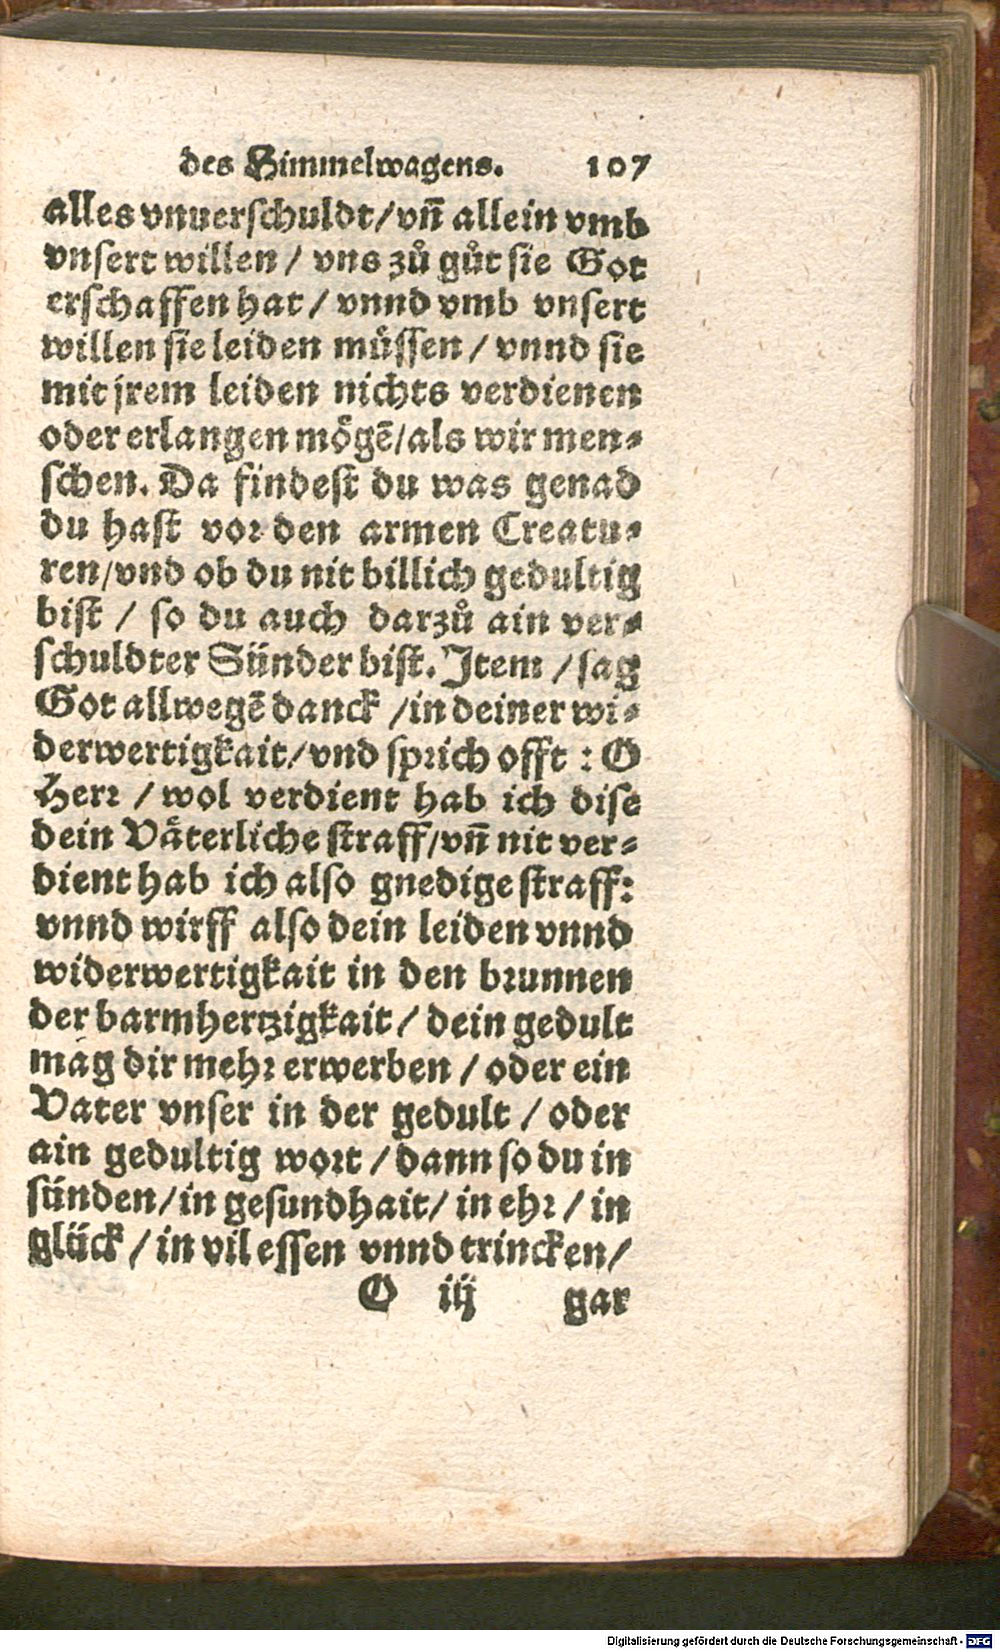 des Himmelwagens. 107
alles vnuerschuldt/vn̄ allein vmb
vnsert willen / vns zů gůt sie Got
erschaffen hat / vnnd vmb vnsert
willen sie leiden müssen / vnnd sie
mit jrem leiden nichts verdienen
oder erlangen mögē/als wir men⸗
schen. Da findest du was genad
du hast vor den armen Creatu⸗
ren/vnd ob du nit billich gedultig
bist / so du auch darzů ain ver⸗
schuldter Sünder bist. Item / sag
Got allwegē danck /in deiner wi⸗
derwertigkait/vnd sprich offt : O
Herr / wol verdient hab ich dise
dein Väterliche straff/vn̄ nit ver⸗
dient hab ich also gnedige straff:
vnnd wirff also dein leiden vnnd
widerwertigkait in den brunnen
der barmhertzigkait / dein gedult
mag dir mehr erwerben / oder ein
Vater vnser in der gedult / oder
ain gedultig wort / dann so du in
sünden/in gesundhait/ in ehr / in
glück / in vil essen vnnd trincken/
O iij gar
Digitalisierung gefördert durch die Deutsche Forschungsgemeinschaft - DFG